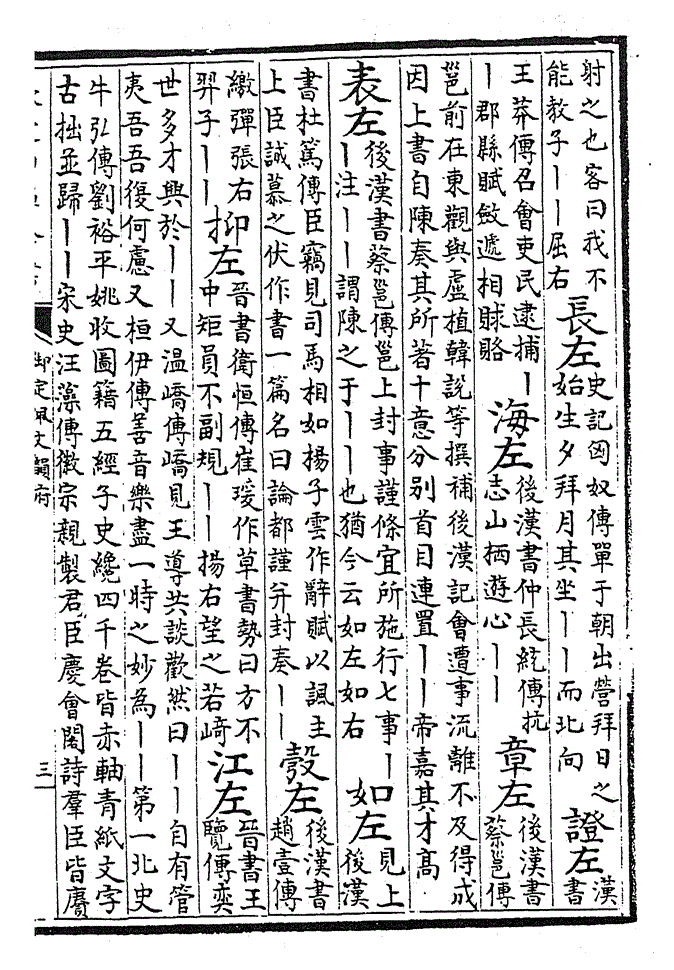 射之也客曰我不
能教子丨丨屈右
長左
史記匈奴傳單于朝出營拜日之
始生夕拜月其坐丨丨而北向
證左
漢
書
王莽傳召會吏民逮捕丨
丨郡縣賦斂遞相賕賂
海左
後漢書仲長統傳抗
志山栖遊心丨丨
章左
後漢書
蔡邕傳
邕前在東觀與盧植韓說等撰補後漢記會遭事流離不及得成
因上書自陳奏其所著十意分別首目連置丨丨帝嘉其才高
表左
後漢書蔡邕傳邕上封事謹條宜所施行七事丨
丨注丨丨謂陳之于丨丨也猶今云如左如右
如左
見上
後漢
書杜篤傳臣竊見司馬相如楊子雲作辭賦以諷主
上臣誠慕之伏作書一篇名曰論都謹并封奏丨丨
彀左
後漢書
趙壹傳
繳彈張右
羿子丨丨
抑左
晉書衛恒傳崔瑗作草書勢曰方不
中矩員不副規丨丨揚右望之若崎
江左
晉書王
覽傳奕
世多才興於丨丨又温嶠傳嶠見王導共談歡然曰丨丨自有管
夷吾吾復何慮又桓伊傳善音樂盡一時之妙為丨丨第一北史
牛弘傳劉裕平姚收圖籍五經子史纔四千卷皆赤軸青紙文字
古拙並歸丨丨宋史汪藻傳徽宗親製君臣慶會閣詩羣臣皆賡
御定佩文韻府
三